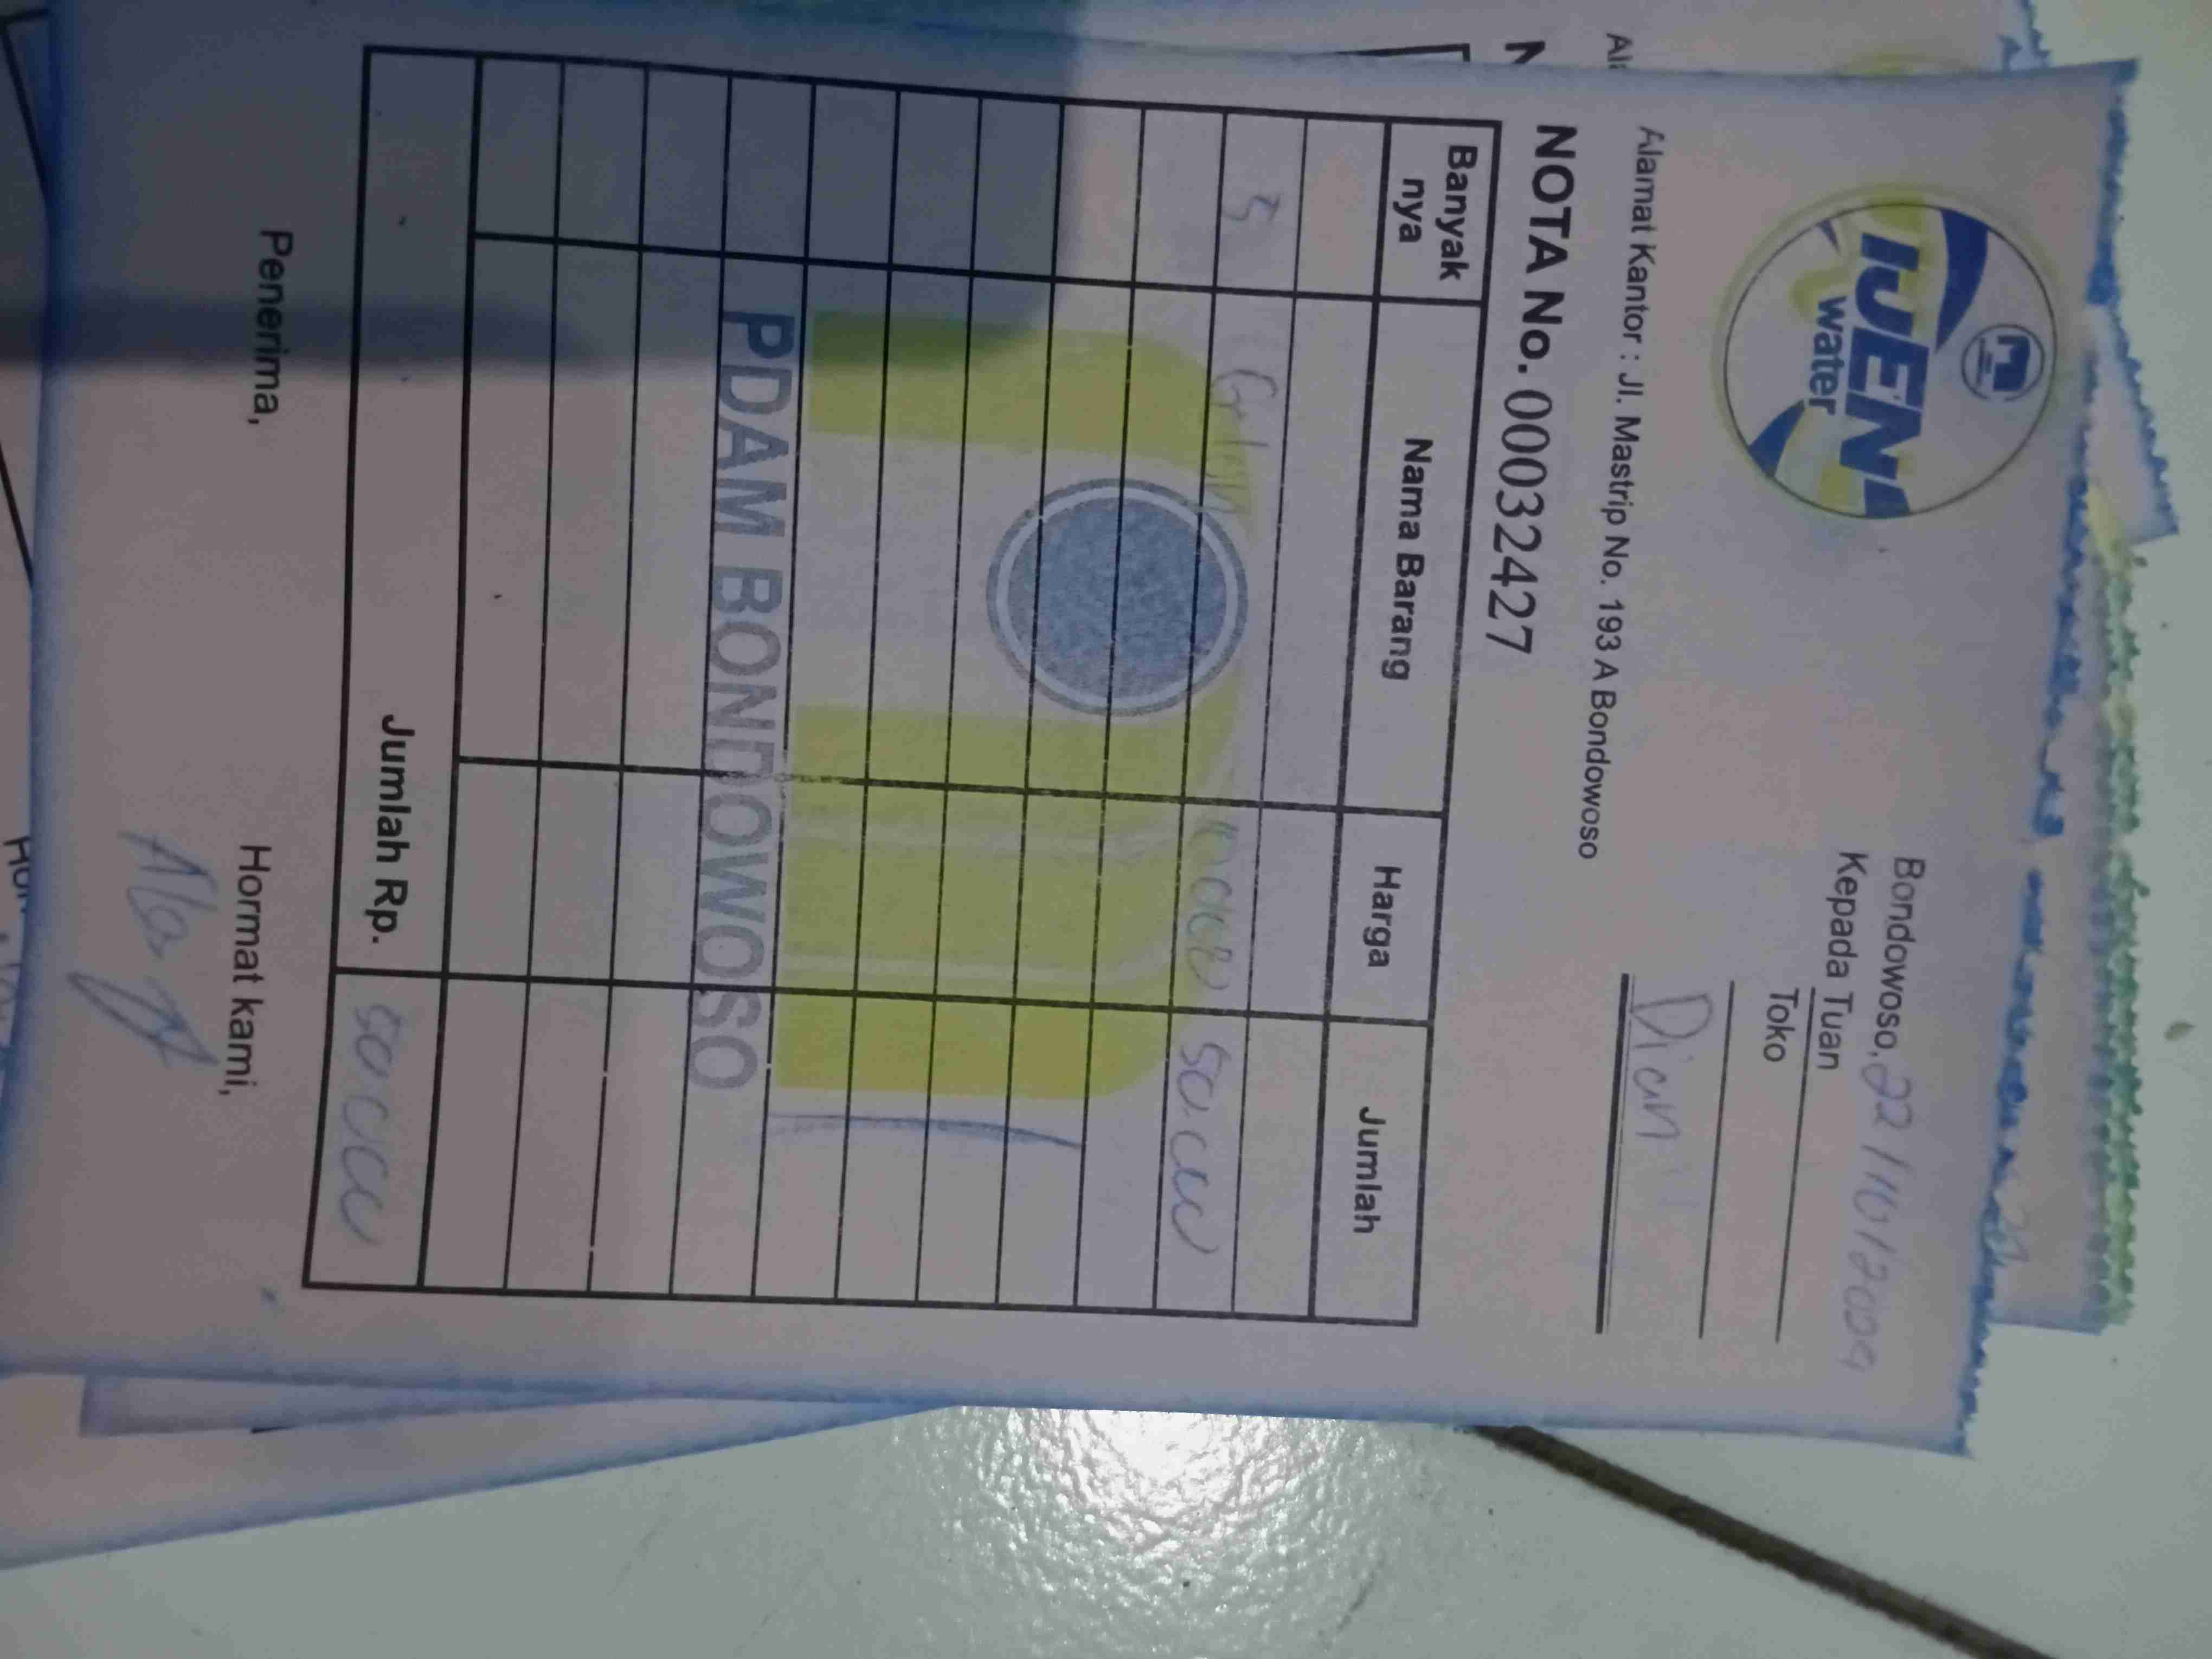 IJEN
water
Bondowoso, 22/10/2009
Kepada Tuan
Toko
Dian
Alamat Kantor : Jl. Mastrip No. 193 A Bondowoso
NOTA No. 000032427
Banyak nya Nama Barang Harga Jumlah
5 Galon
PDAM BONDOWOSO
Jumlah Rp.
Penerima, Hormat kami,